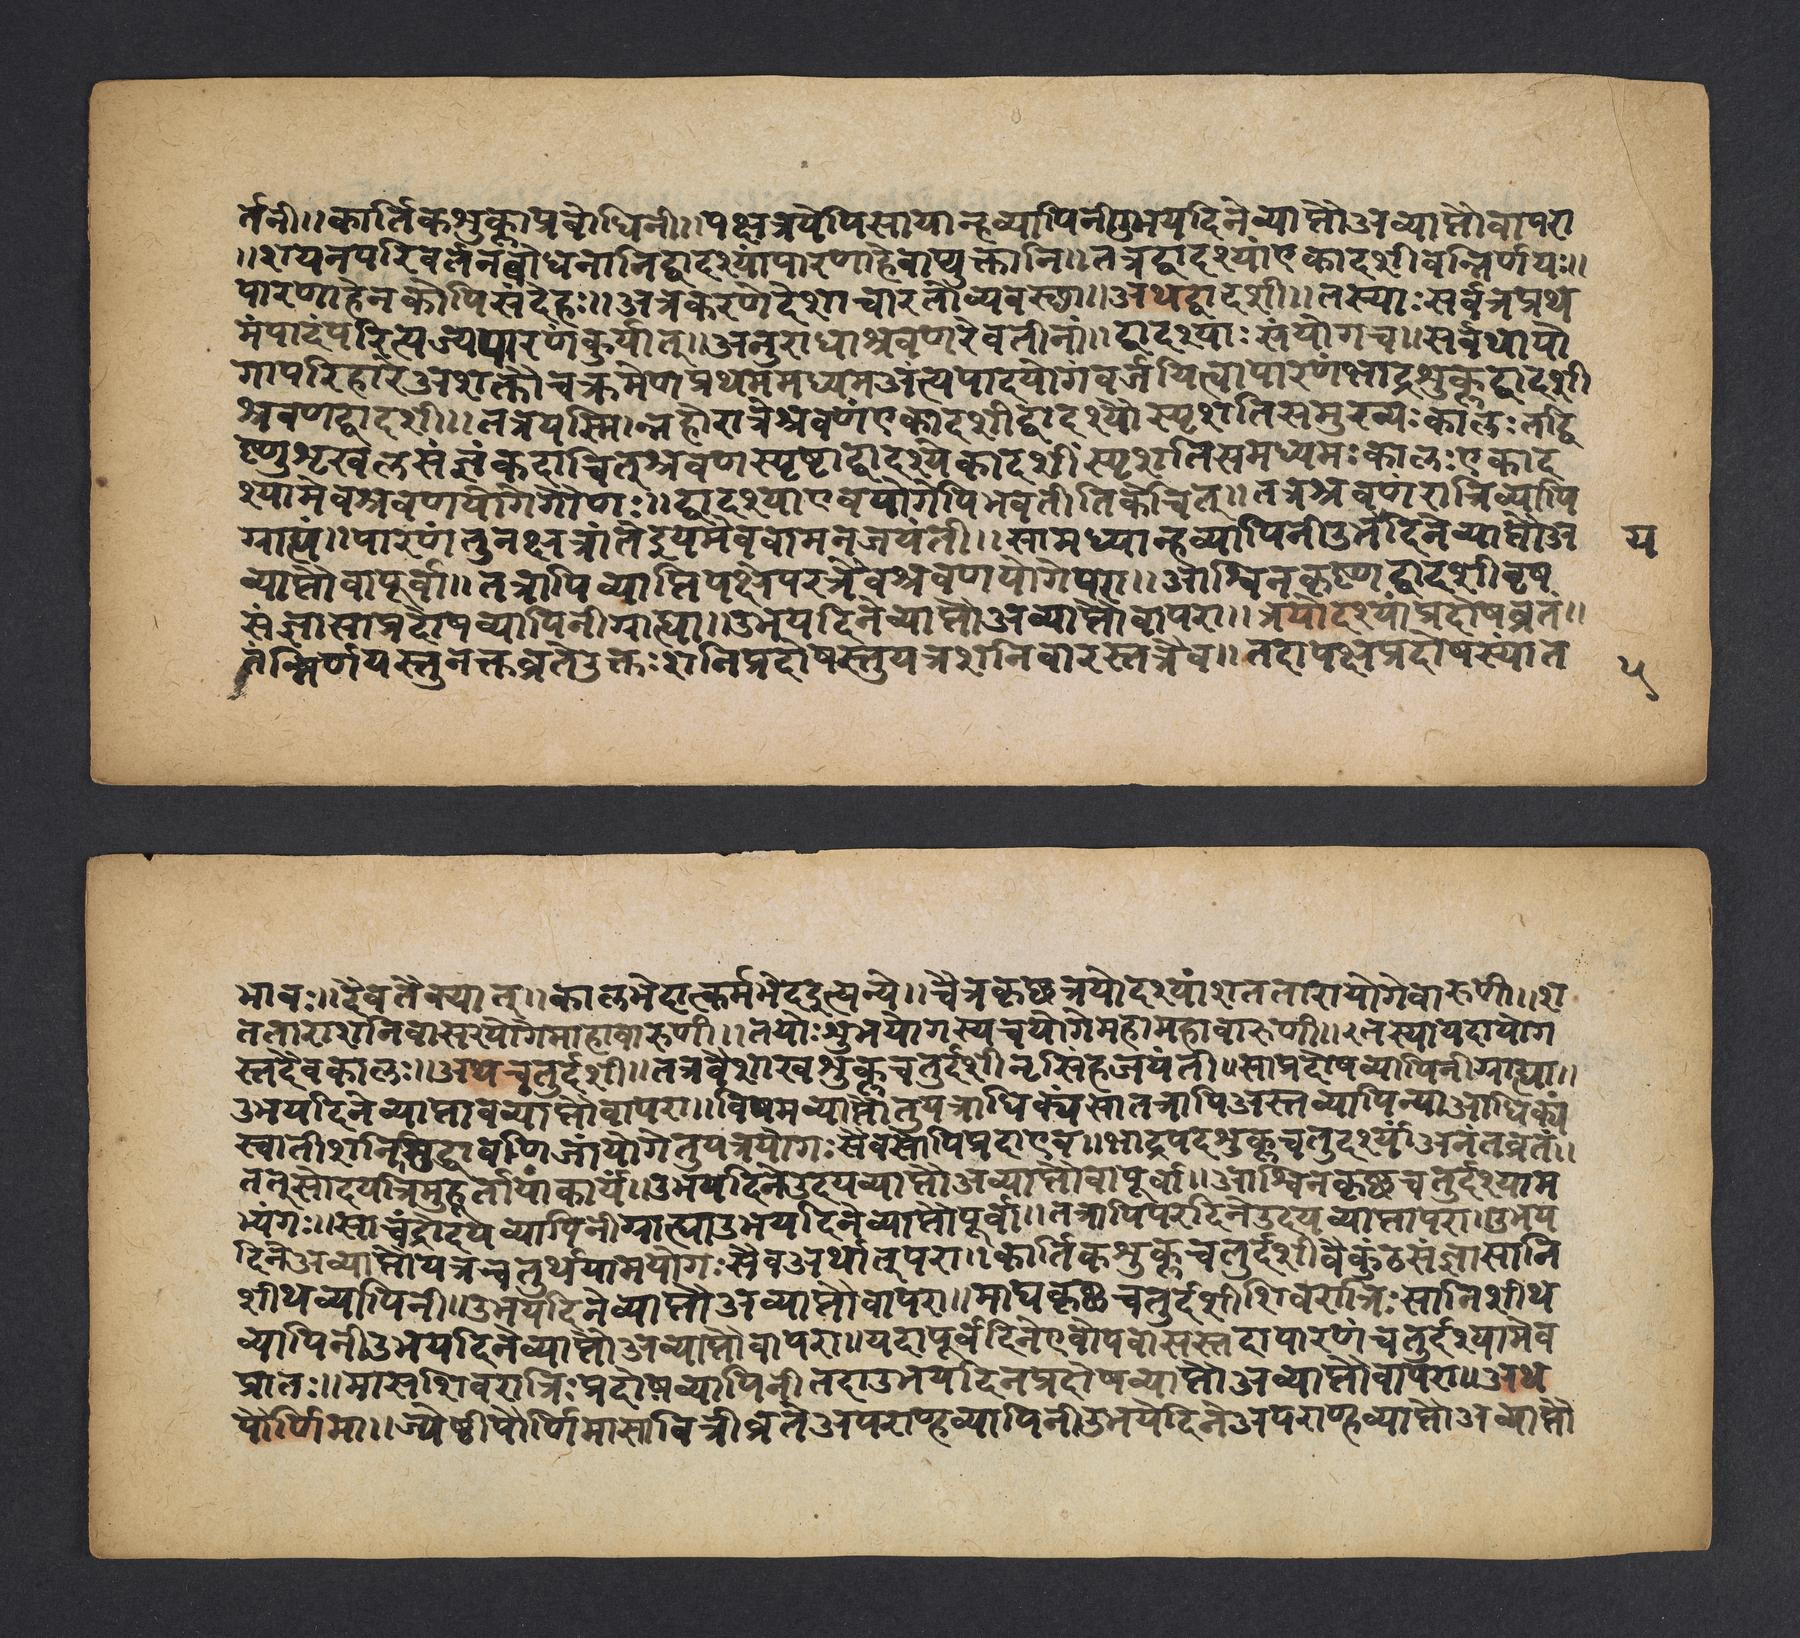 र्तनी।।कार्तिकशुक्लाप्रबोधिनी।।पक्षत्रयेपिसायान्हव्यापिनीउभयदिनेव्याप्तौअव्याप्तौवापरा
।।शयनपरिवर्तनबोधनानिद्वादश्यांपारणाहेवाप्युक्तानि।।तत्रद्वादश्यांएकादशीवन्निर्णयः।।
पारणाहेनकोपिसंदेहः।।अत्रकरणेदेशाचारतोव्यवस्छा।।अथद्वादशी।।तस्याःसर्वत्रप्रथ
मंपादंपरित्यज्यपारणंकुर्यात्।।अनुराधाश्रवणरेवतीनां।।द्वादश्याःसंयोगच।।सर्वथायो
गापरिहारेअशक्तौचक्रमेणप्रथममध्यमअंत्यपादयोगंवर्जयित्वापारणंभाद्रशुक्लद्वादशी
श्रवणद्वादशी।।तत्रयस्मिन्नहोरात्रेश्रवणंएकादशीद्वादश्यौस्पृशतिसमुख्यःकालःतद्वि
ष्णुशृखलसंज्ञंकदाचित्श्रवणस्पृष्टाद्वादश्येकादशींस्पृशतिसमध्यमःकालःएकाद
श्यामेवश्रवणयोगेगौणः।।द्वादश्याएवयोगेपिभवतीतिकेचित्।।तत्रश्रवणंरात्रिव्यापि
ग्राह्यं।।पारणंतुनक्षत्रांतेइयमेववामनजयंती।।सामध्यान्हव्यापिनीउभदिनेव्याप्तौअ य
व्याप्तौवापूर्वा।।तत्रापिव्याप्तिपक्षेपरत्रैवश्रवणयोगेपरा।।आश्विनकृष्णद्वादशीवृष
संज्ञासाप्रदोषव्यापिनीग्राह्या।।उभयदिनेव्याप्तौअव्याप्तौवापरा।।त्रयोदश्यांप्रदोषव्रतं।।
तन्निर्णयस्तुनक्तव्रतेउक्तःशनिप्रदोषस्तुयत्रशनिवारस्तत्रैव।।तदापक्षप्रदोषस्यात
५
भावः।।दैवतैक्यात्।।कालभेदात्कर्मभेदइत्यन्ये।।चैत्रकृष्णत्रयोदश्यांशततारायोगेवारुणी।।श
तताराशनिवासरयोगेमाहावारुणी।।तयोःशुभयोगस्यचयोगेमहामहावारुणी।।२तस्यायदायोग
स्तदैवकालः।।अथचतुर्दशी।।तत्रवैशाखशुक्लचतुर्दशीनृसिंहजयंती॥साप्रदोषव्यापिनीग्राह्या।।
उभयदिनेव्याप्तावव्याप्तौवापरा।।विषमव्याप्तौतुयत्राधिक्यंसातत्रापिअस्तव्यापिन्याआधिक्यं
स्वातीशनिसिद्धावणिजांयोगेतुयत्रयोगःसैवसापिप्रदाएव॥भाद्रपदशुक्लचतुदश्यांअनंतव्रतं।।
तत्सोदयत्रिमुहूर्तायांकार्यं।।उभयदिनेउदयव्याप्तौअव्याप्तौवापूर्वा॥आश्विनकृष्णचतुर्दश्याम
भ्यंगः।।साचंद्रोदयव्यापिनीग्रात्याउभयदिनेव्याप्तौपूर्वा।।तत्रापिपरदिनेउदयव्याप्तापरा।।उभय
दिनेअव्याप्तौयत्रचतुर्थयामयोगःसैवअर्थात्परा।।कार्तिकशुक्लचतुर्दशीवैकुंठसंज्ञासानि
शीथव्यपिनी॥उभयदिनेव्याप्तौअव्याप्तौवापरा।।माघकृष्णचतुर्दशीशिवरात्रिःसानिशीथ
व्यापिनीउभयदिनेव्याप्तौअव्याप्तौवापरा॥यदापूर्वदिनेएवोपवासस्तदापारणंचतुर्दश्यामेव
प्रातः।।मासशिवरात्रिःप्रदोषव्यापिनीतदाउभयदिनप्रदोषव्याप्तौअव्याप्तौवापरा॥अथ
पौर्णिमा।।ज्येष्ठीपौर्णिमासावित्रीव्रतेअपराण्हव्यापिनीउभयदिनेअपराण्हव्याप्तौअव्याप्तौ